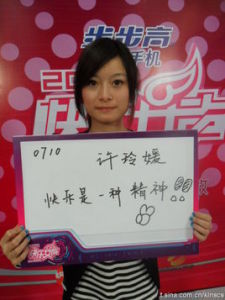 步步高
手机
20
快 女声
0710 许玲媛
快乐是一种精神!!
t.sina.com.cn/klnscs